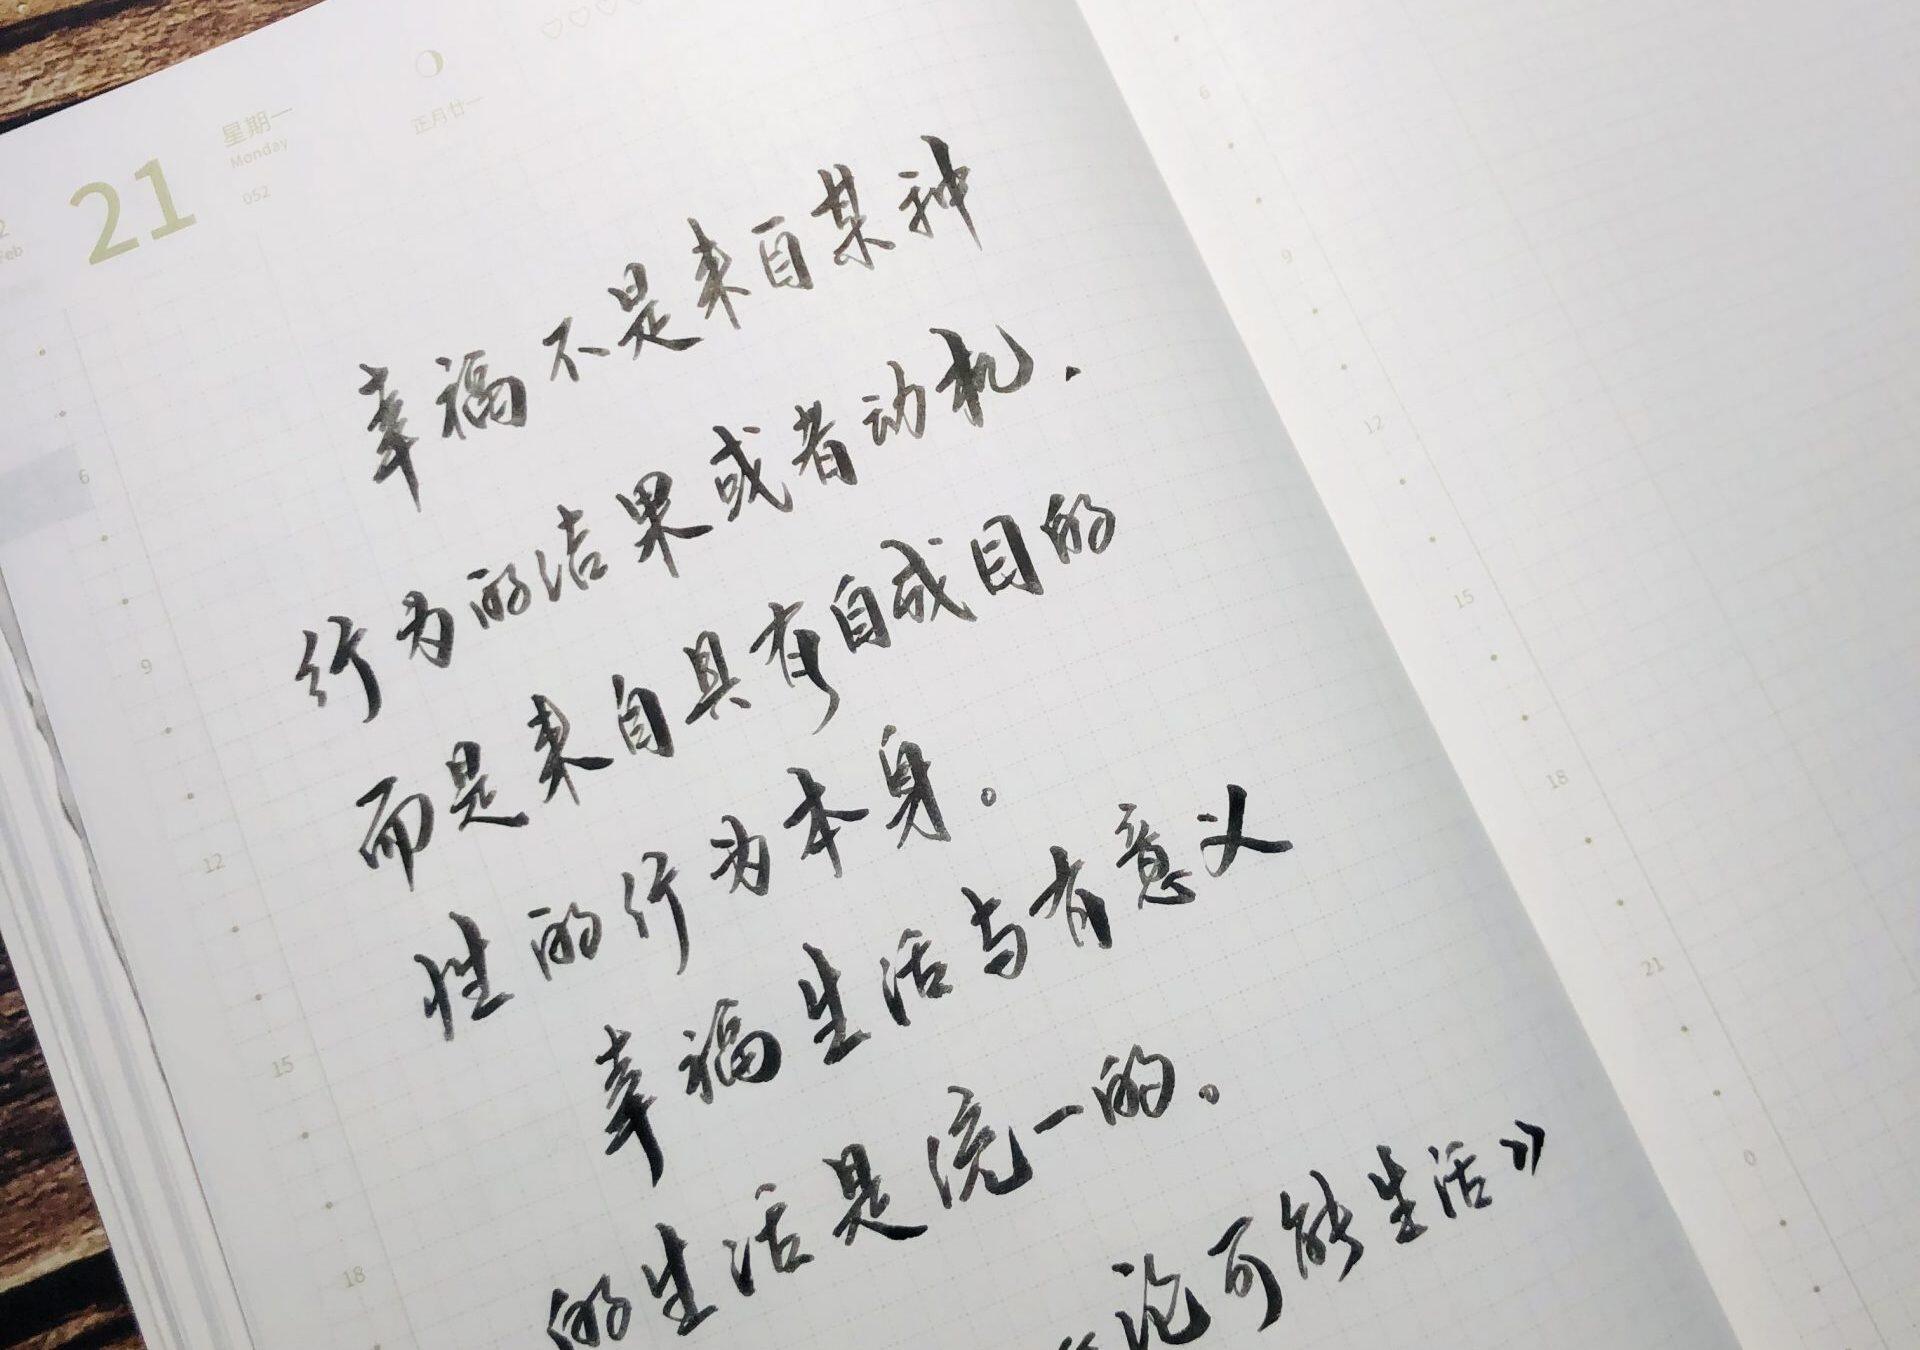 21
星期一
Monday
052
正月廿一
Feb
幸福不是来自某种
行为的洁果或者动机.
而是来自具有自成目的
性的行为本身。
幸福生活与有意义
的生活是统一的。
《论可能生活》
6
9
12
15
18
6
9
12
15
18
21
0